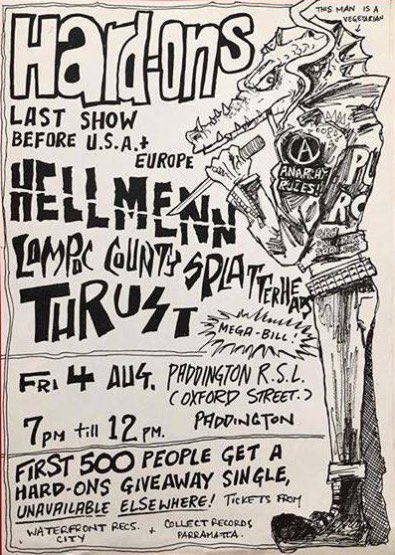 THIS MAN IS A
VEGETARIAN
Hard-ons
LAST SHOW
BEFORE U.S.A. +
EUROPE
HELLMENN
LOMPOC COUNTY SPLATTERHEADS
THRUST
MEGA-BILL!
ANARCHY
RULES!
FRI 4 AUG. PADDINGTON R.S.L.
(OXFORD STREET.)
PADDINGTON
7PM till 12 PM.
FIRST 500 PEOPLE GET A
HARD-ONS GIVEAWAY SINGLE,
UNAVAILABLE ELSEWHERE! TICKETS FROM
WATERFRONT RECS. + COLLECT RECORDS
CITY PARRAMATTA.